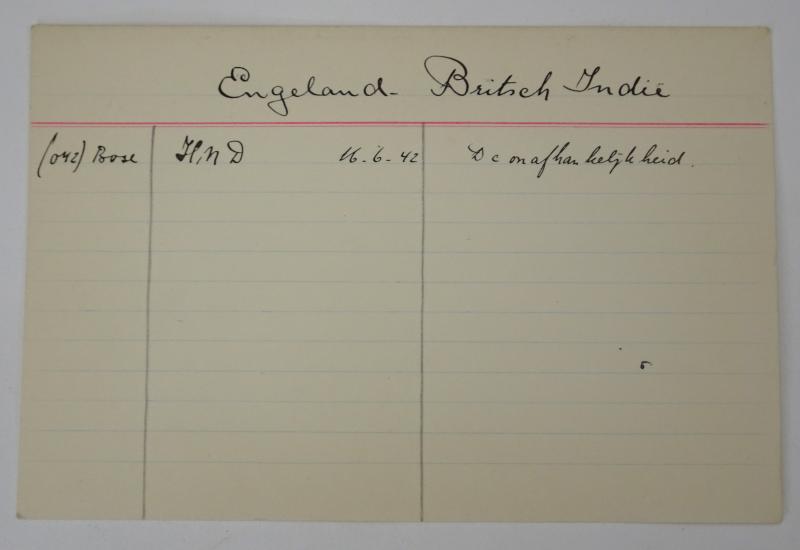 Engeland - Britsch Indië
(042) Bose H.N D 16-6-42 De onafhankelijkheid.